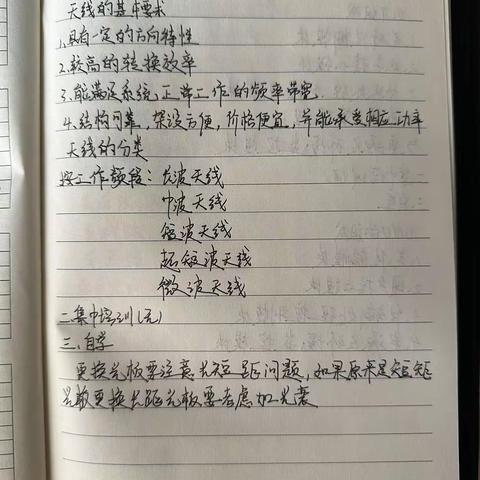 天线的基本要求
1.具有一定的方向特性
2.较高的转换效率
3.能满足系统正常工作的频率带宽
4.结构可靠,架设方便,价格便宜,并能承受相应功率
天线的分类
按工作频段:长波天线
中波天线
短波天线
超短波天线
微波天线
二.集中培训(无)
三.自学
更换光板要注意长短距问题,如果原来是短距
光板更换长距光板要考虑加光衰